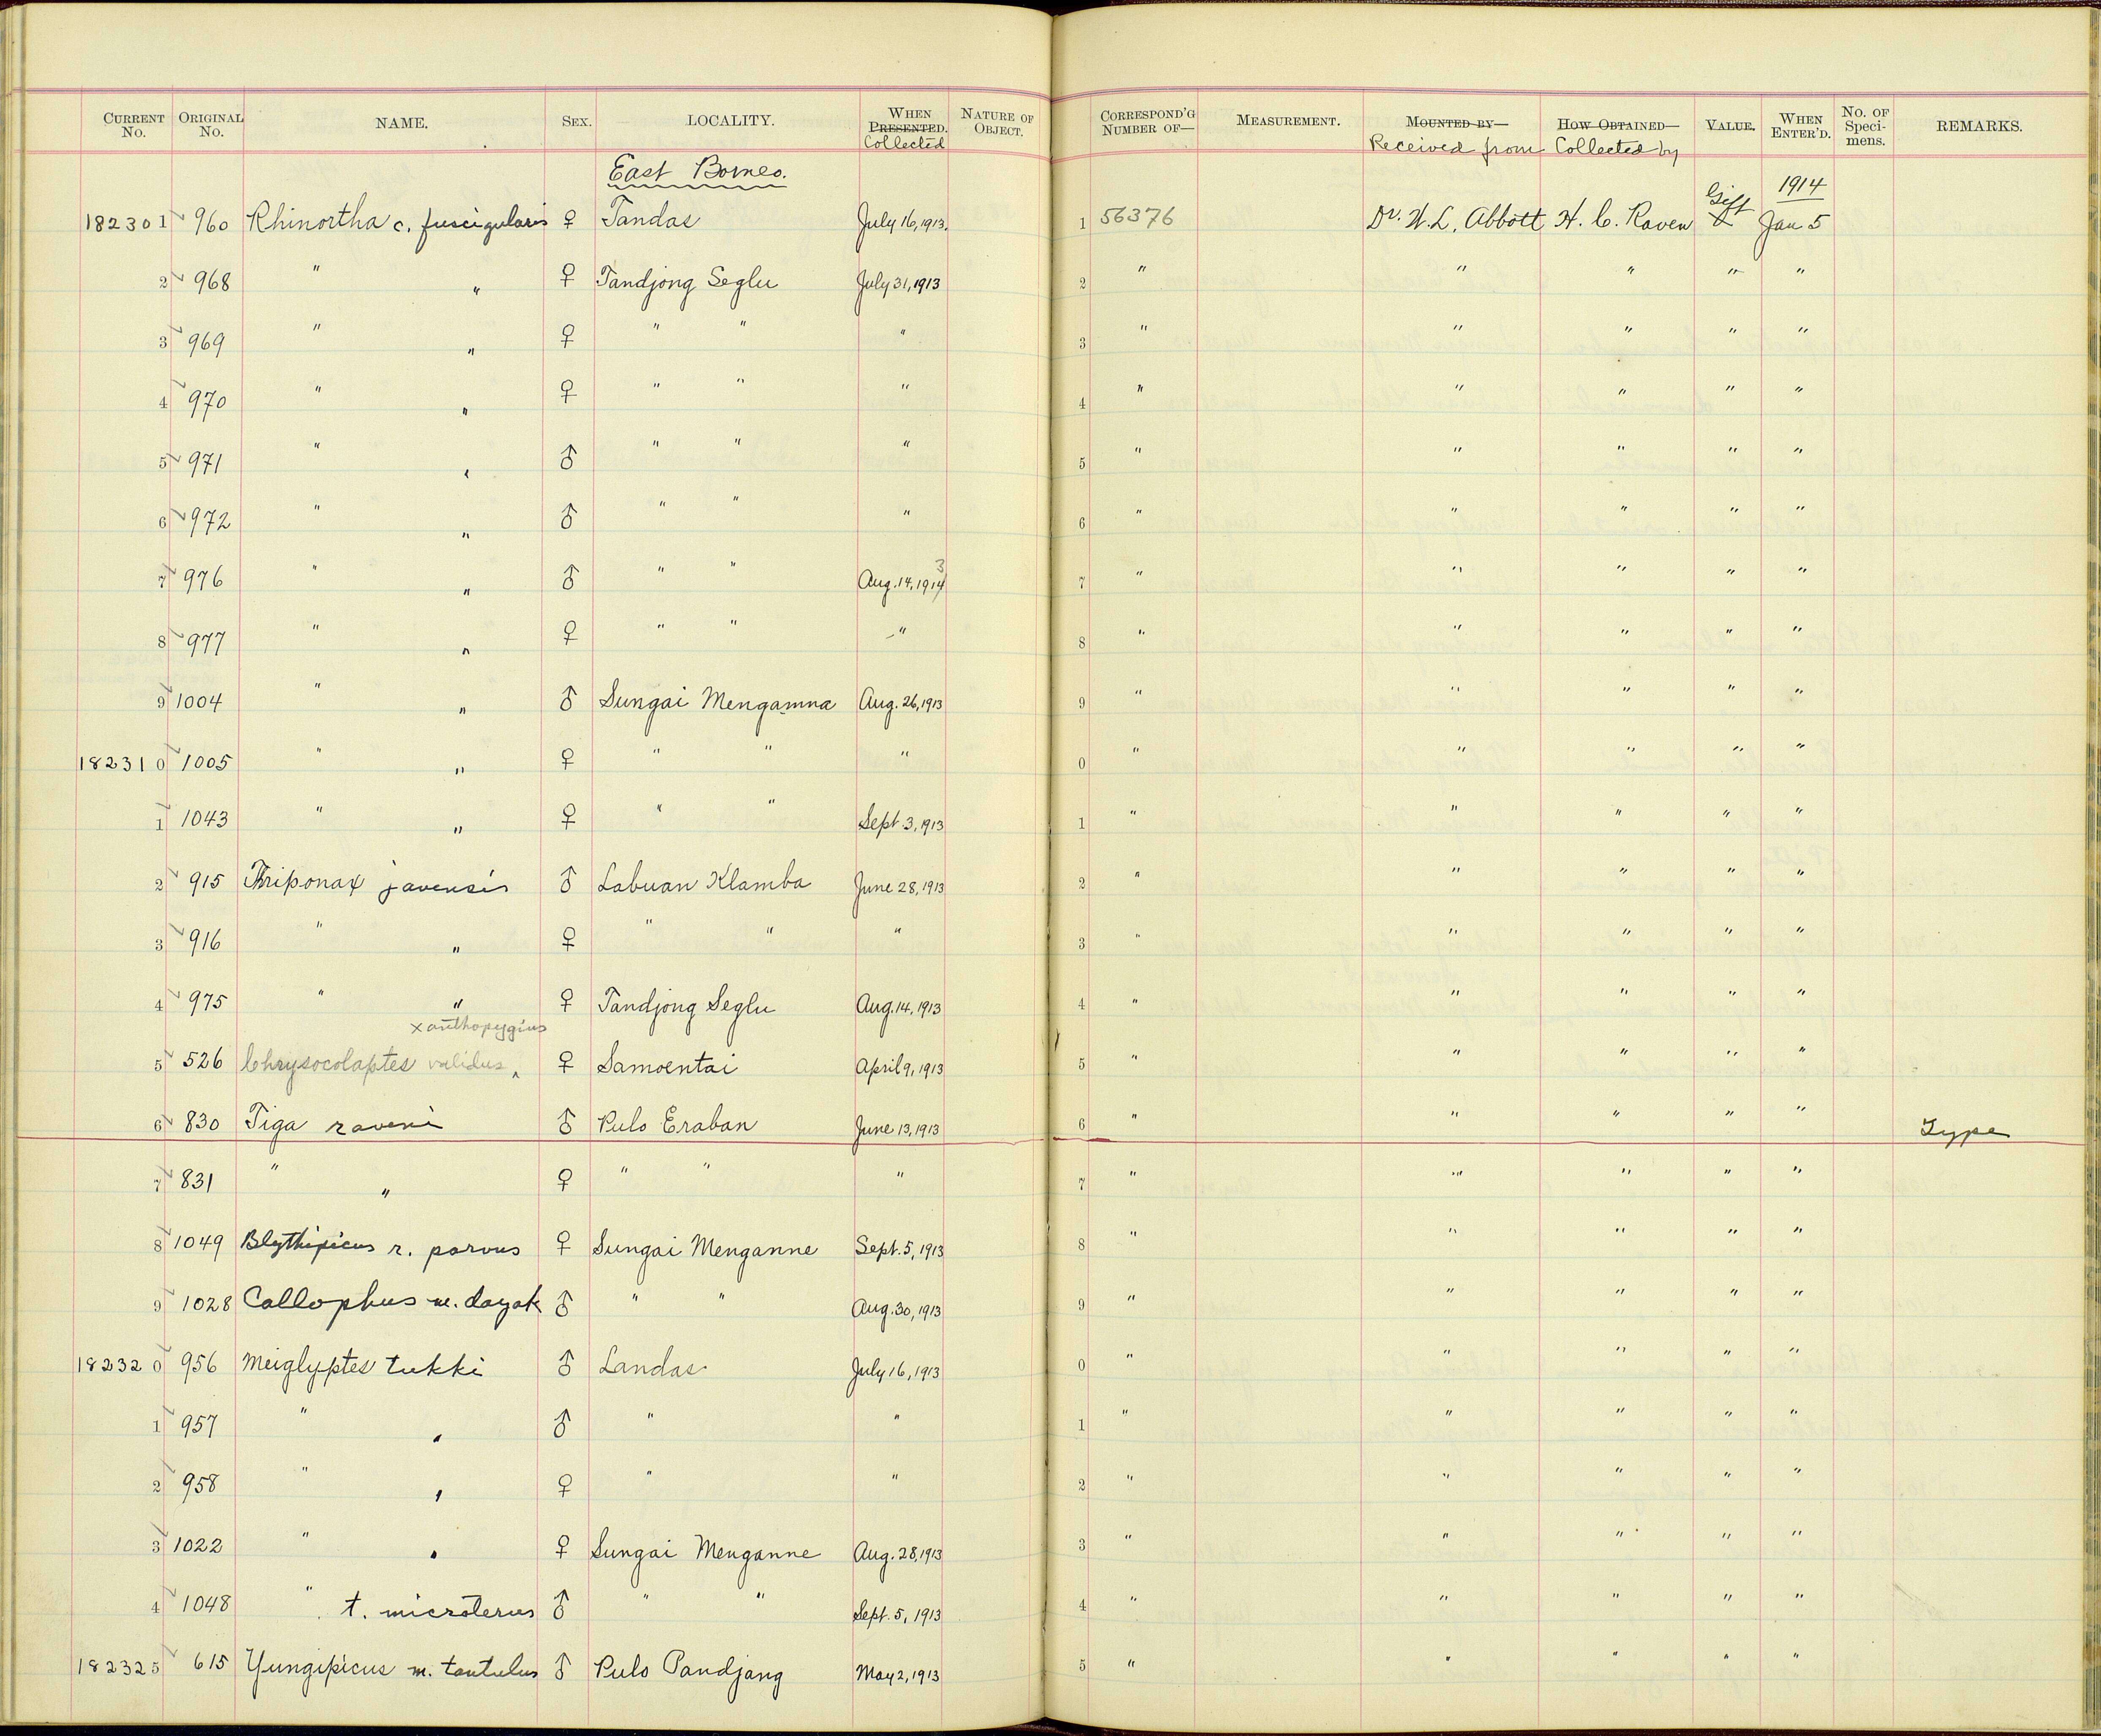 CURRENT No. ORIGINAL No. NAME. SEX. LOCALITY. WHEN PRESENTED. Collected NATURE OF OBJECT. CORRESPOND'G NUMBER OF— MEASUREMENT. MOUNTED BY— Received from HOW OBTAINED— Collected by VALUE. WHEN ENTER'D. No. OF Speci-mens. REMARKS.
East Borneo.
1914
182301 960 Rhinortha c. fuscigularis ♀ Tandas July 16, 1913. 1 56376 Dr. W. L. Abbott H. C. Raven Gift Jan 5
2 968 " " ♀ Tandjong Seglu July 31, 1913 2 " " " " "
3 969 " " ♀ " " " 3 " " " " "
4 970 " " ♀ " " " 4 " " " " "
5 971 " " ♂ " " " 5 " " " " "
6 972 " " ♂ " " " 6 " " " " "
7 976 " " ♂ " " Aug. 14, 1914 3 7 " " " " "
8 977 " " ♀ " " " 8 " " " " "
9 1004 " " ♂ Sungai Mengamna Aug. 26, 1913 9 " " " " "
182310 1005 " " ♀ " " " 0 " " " " "
1 1043 " " ♀ " " Sept 3, 1913 1 " " " " "
2 915 Thriponax javensis ♂ Labuan Klamba June 28, 1913 2 " " " " "
3 916 " " ♀ " " " 3 " " " " "
4 975 " " ♀ Tandjong Seglu Aug. 14, 1913 4 " " " " "
xanthopygius
5 526 Chrysocolaptes validus ‸ ♀ Samoentai April 9, 1913 5 " " " " "
6 830 Tiga raveni ♂ Pulo Eraban June 13, 1913 6 " " " " " Type
7 831 " " ♀ " " " 7 " " " " "
8 1049 Blythipicus r. parvus ♀ Sungai Menganne Sept. 5, 1913 8 " " " " "
9 1028 Callophus m. dayak ♂ " " Aug. 30, 1913 9 " " " " "
182320 956 Meiglyptes tukki ♂ Landas July 16, 1913 0 " " " " "
1 957 " " ♂ " " 1 " " " " "
2 958 " " ♀ " " 2 " " " " "
3 1022 " " ♀ Sungai Menganne Aug. 28, 1913 3 " " " " "
4 1048 " t. microterus ♂ " " Sept. 5, 1913 4 " " " " "
182325 615 Yungipicus m. tantulus ♂ Pulo Pandjang May 2, 1913 5 " " " " "